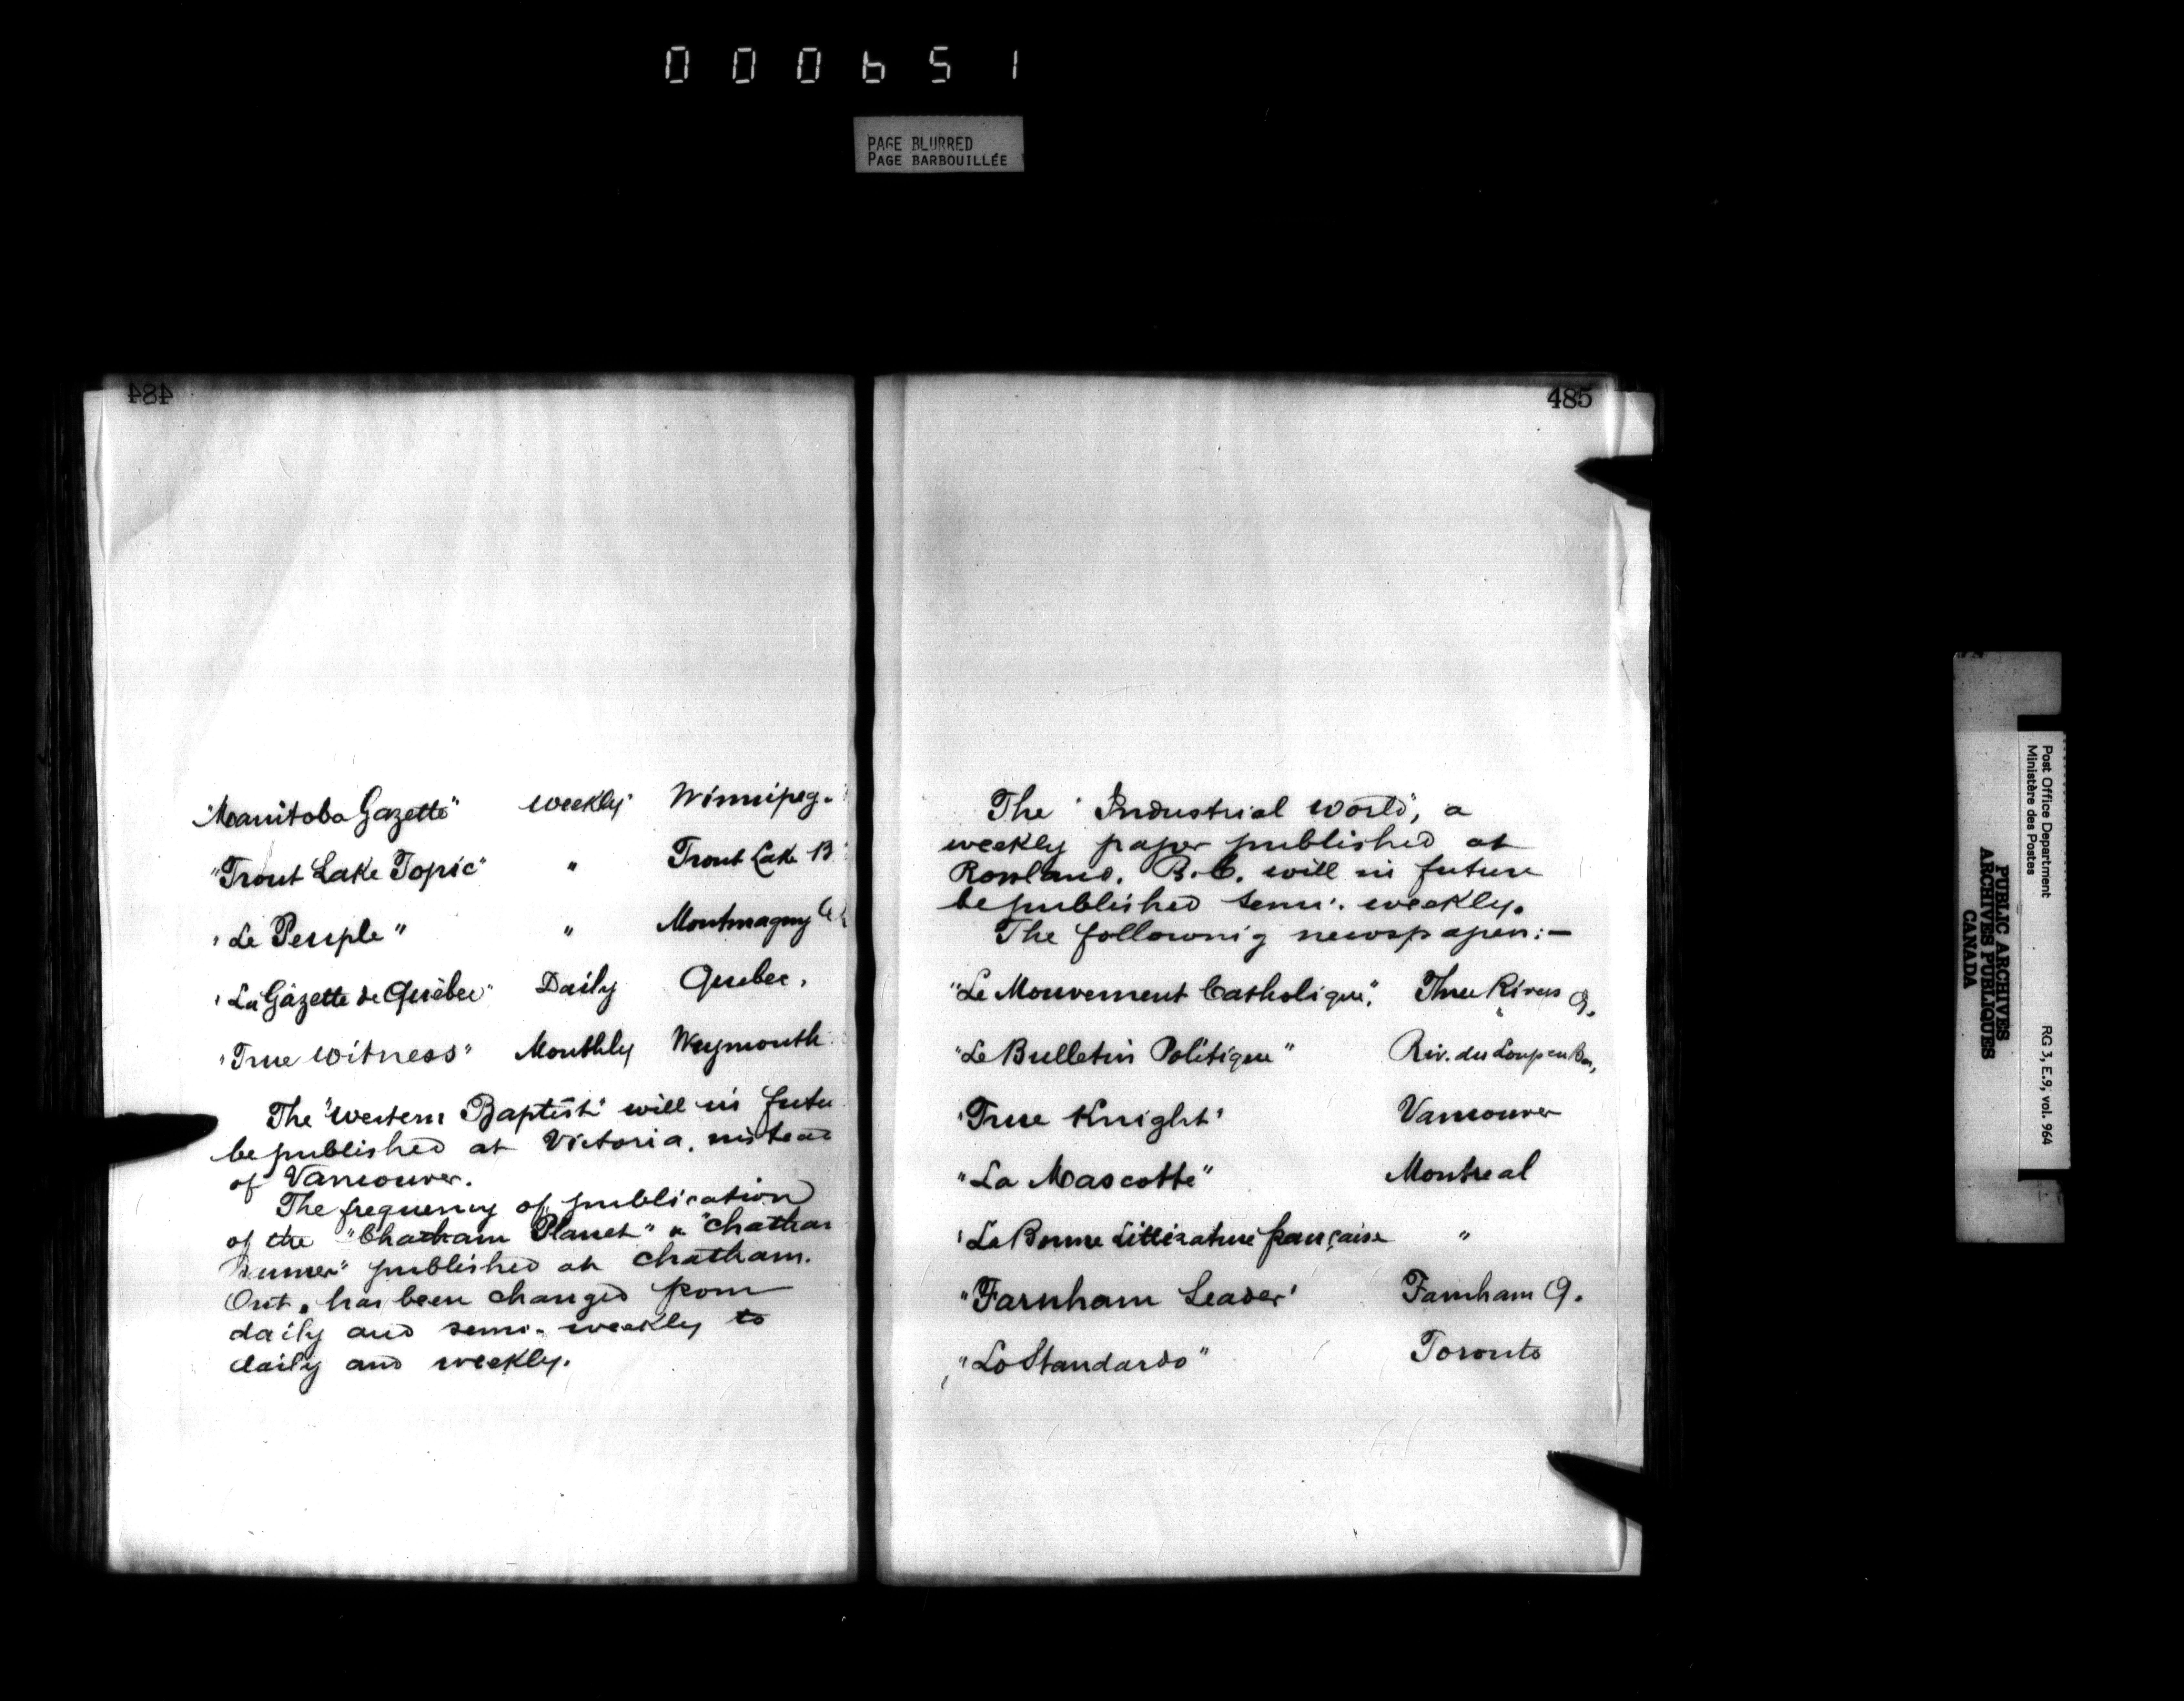 000651
PAGE BLURRED
PAGE BARBOUILLÉE
484
"Manitoba Gazette" weekly Winnipeg.
"Trout Lake Topic" " Trout Lake B
"Le Peuple" " Montmagny
"La Gazette de Québec" Daily Quebec.
"True Witness" Monthly Weymouth
The "Western Baptist" will in futu
be published at Victoria, instead
of Vancouver.
The frequency of publication
of the "Chatham Planet" & "Chatham
Banner" published at Chatham.
Ont. has been changed from
daily and semi-weekly to
daily and weekly.
485
The "Industrial World", a
weekly paper published at
Rossland, B.C. will in future
be published semi-weekly.
The following newspapers:—
"Le Mouvement Catholique", Three Rivers Q.
"Le Bulletin Politique" Riv. du Loup en Bas,
"True Knight" Vancouver
"La Mascotte" Montreal
"La Bonne Littérature française "
"Farnham Leader" Farnham Q.
"Lo Standardo" Toronto
Post Office Department
Ministère des Postes
RG 3, E.9, vol. 964
PUBLIC ARCHIVES
ARCHIVES PUBLIQUES
CANADA